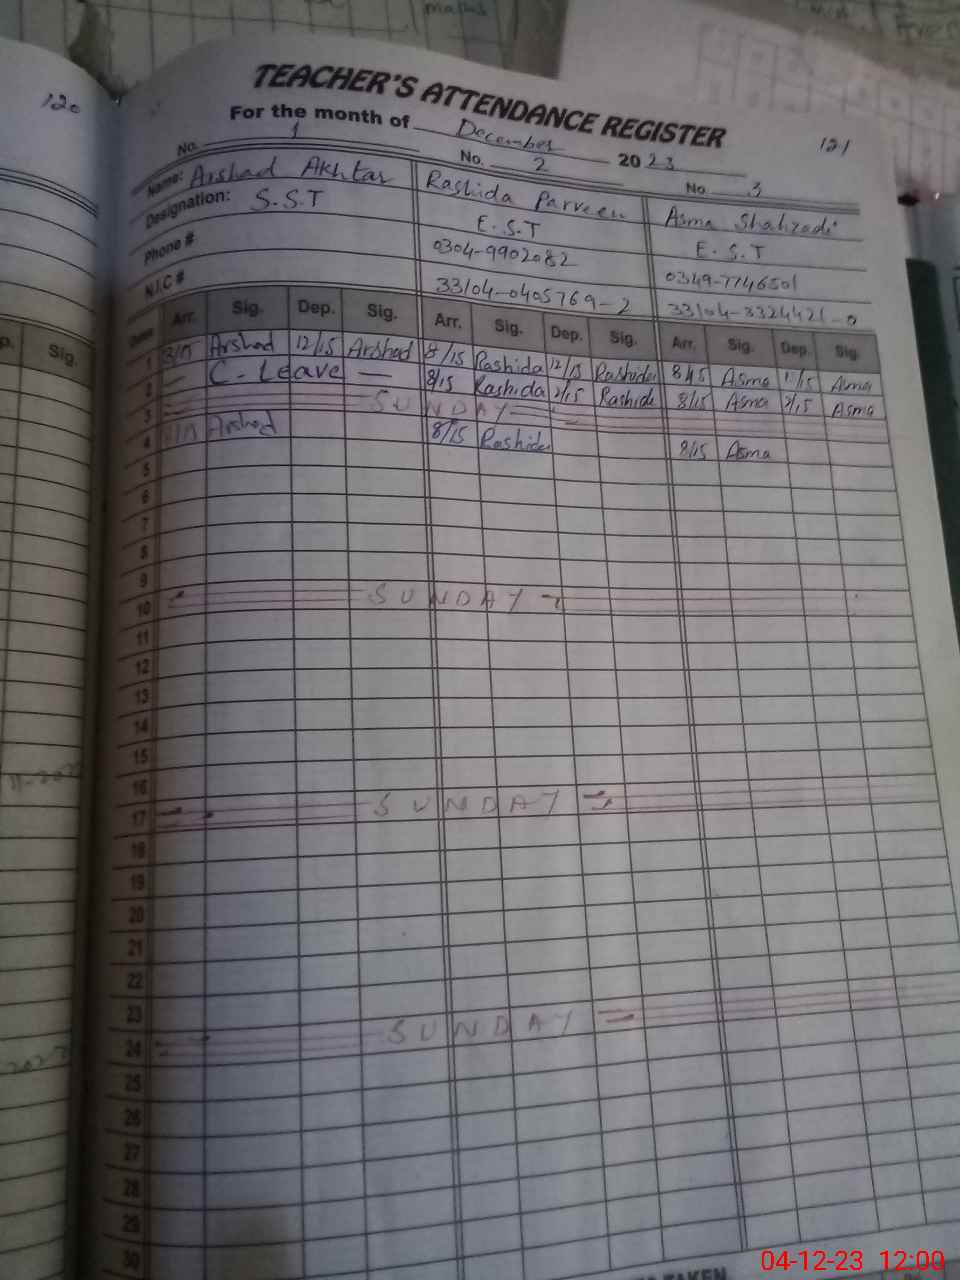 120
TEACHER'S ATTENDANCE REGISTER
121
For the month of December 2023
No. 1 No. 2 No. 3
Name: Arshad Akhtar Rashida Parveen Asma Shahzadi
Designation: S.S.T E.S.T E.S.T
Phone # 0304-9902082 0349-7746501
N.I.C # 33104-0405769-2 33104-3324421-0
Arr. Sig. Dep. Sig. Arr. Sig. Dep. Sig. Arr. Sig. Dep. Sig.
1 Arshad 12/15 Arshad 8/15 Rashida 12/15 Rashida Asma Asma
2 — C. Leave — 8/15 Rashida Rashida 8/15 Asma Asma
3 SUNDAY
4 Arshad 8/15 Rashida 8/15 Asma
5
6
7
8
9
10 SUNDAY
11
12
13
14
15
16
17 SUNDAY
18
19
20
21
22
23
24 SUNDAY
25
26
27
28
29
30
TAKEN
04-12-23 12:00